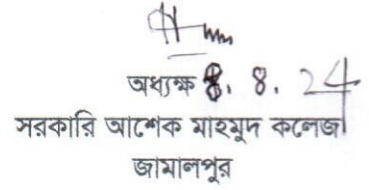 অধ্যক্ষ 8. 8. 24
সরকারি আশেক মাহমুদ কলেজ
জামালপুর